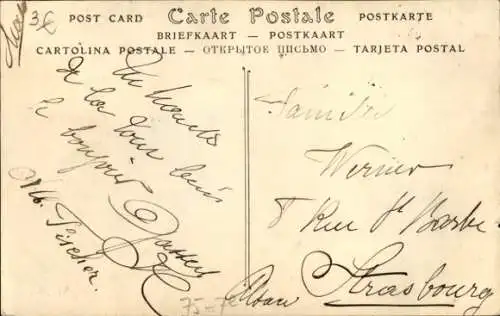 POST CARD Carte Postale POSTKARTE
BRIEFKAART — POSTKAART
CARTOLINA POSTALE — ОТКРЫТОЕ ПИСЬМО — TARJETA POSTAL
36
Du haut
de la Tour
le bonjour
M. Fischer.
Famille
Werner
8 Rue St Barbe
Strasbourg
Elsass
75-7